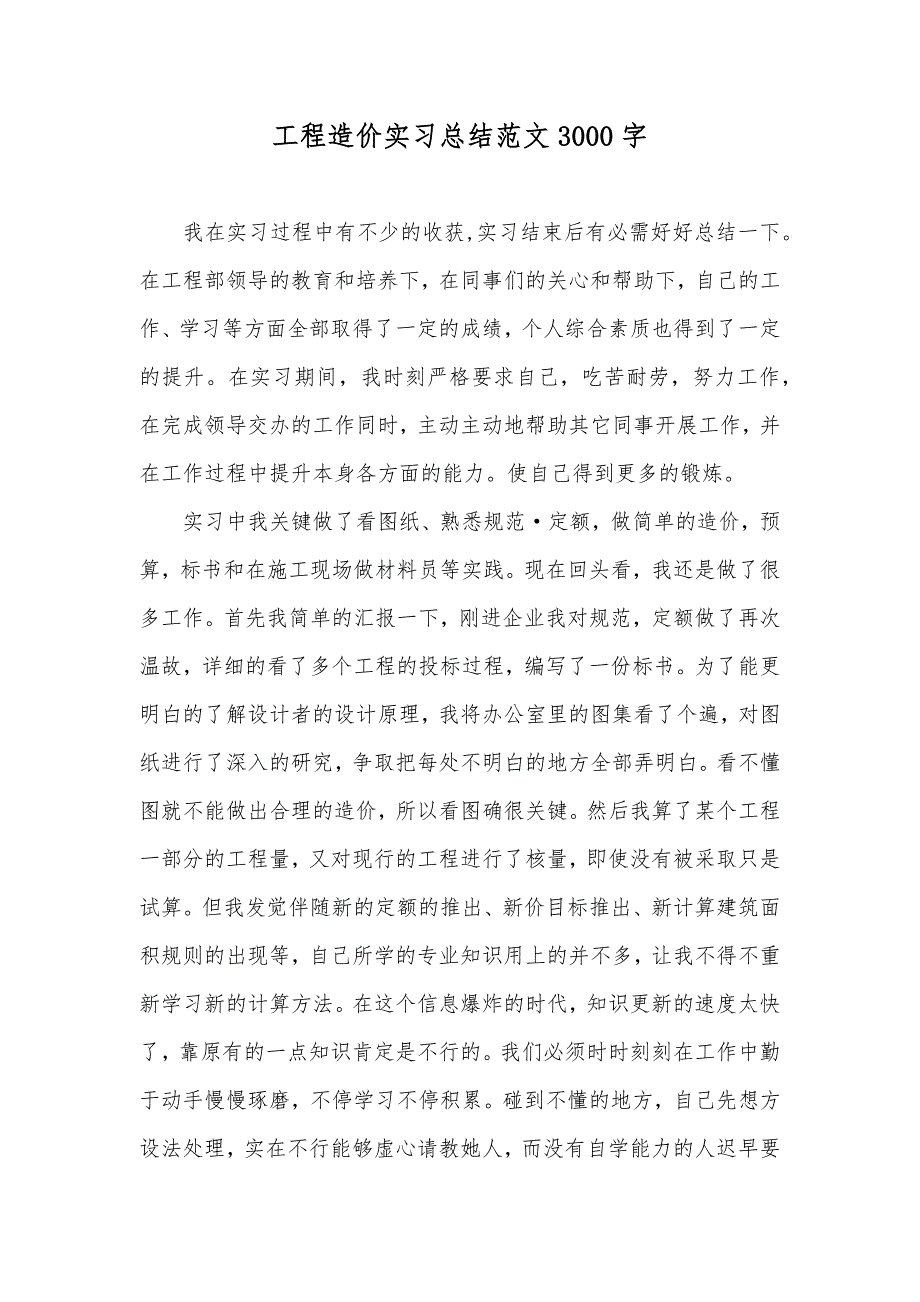 工程造价实习总结范文 3000 字
我在实习过程中有不少的收获,实习结束后有必需好好总结一下。
在工程部领导的教育和培养下，在同事们的关心和帮助下，自己的工
作、学习等方面全部取得了一定的成绩，个人综合素质也得到了一定
的提升。在实习期间，我时刻严格要求自己，吃苦耐劳，努力工作，
在完成领导交办的工作同时，主动主动地帮助其它同事开展工作，并
在工作过程中提升本身各方面的能力。使自己得到更多的锻炼。
实习中我关键做了看图纸、熟悉规范·定额，做简单的造价，预
算，标书和在施工现场做材料员等实践。现在回头看，我还是做了很
多工作。首先我简单的汇报一下，刚进企业我对规范，定额做了再次
温故，详细的看了多个工程的投标过程，编写了一份标书。为了能更
明白的了解设计者的设计原理，我将办公室里的图集看了个遍，对图
纸进行了深入的研究，争取把每处不明白的地方全部弄明白。看不懂
图就不能做出合理的造价，所以看图确很关键。然后我算了某个工程
一部分的工程量，又对现行的工程进行了核量，即使没有被采取只是
试算。但我发觉伴随新的定额的推出、新价目标推出、新计算建筑面
积规则的出现等，自己所学的专业知识用上的并不多，让我不得不重
新学习新的计算方法。在这个信息爆炸的时代，知识更新的速度太快
了，靠原有的一点知识肯定是不行的。我们必须时时刻刻在工作中勤
于动手慢慢琢磨，不停学习不停积累。碰到不懂的地方，自己先想方
设法处理，实在不行能够虚心请教她人，而没有自学能力的人迟早要